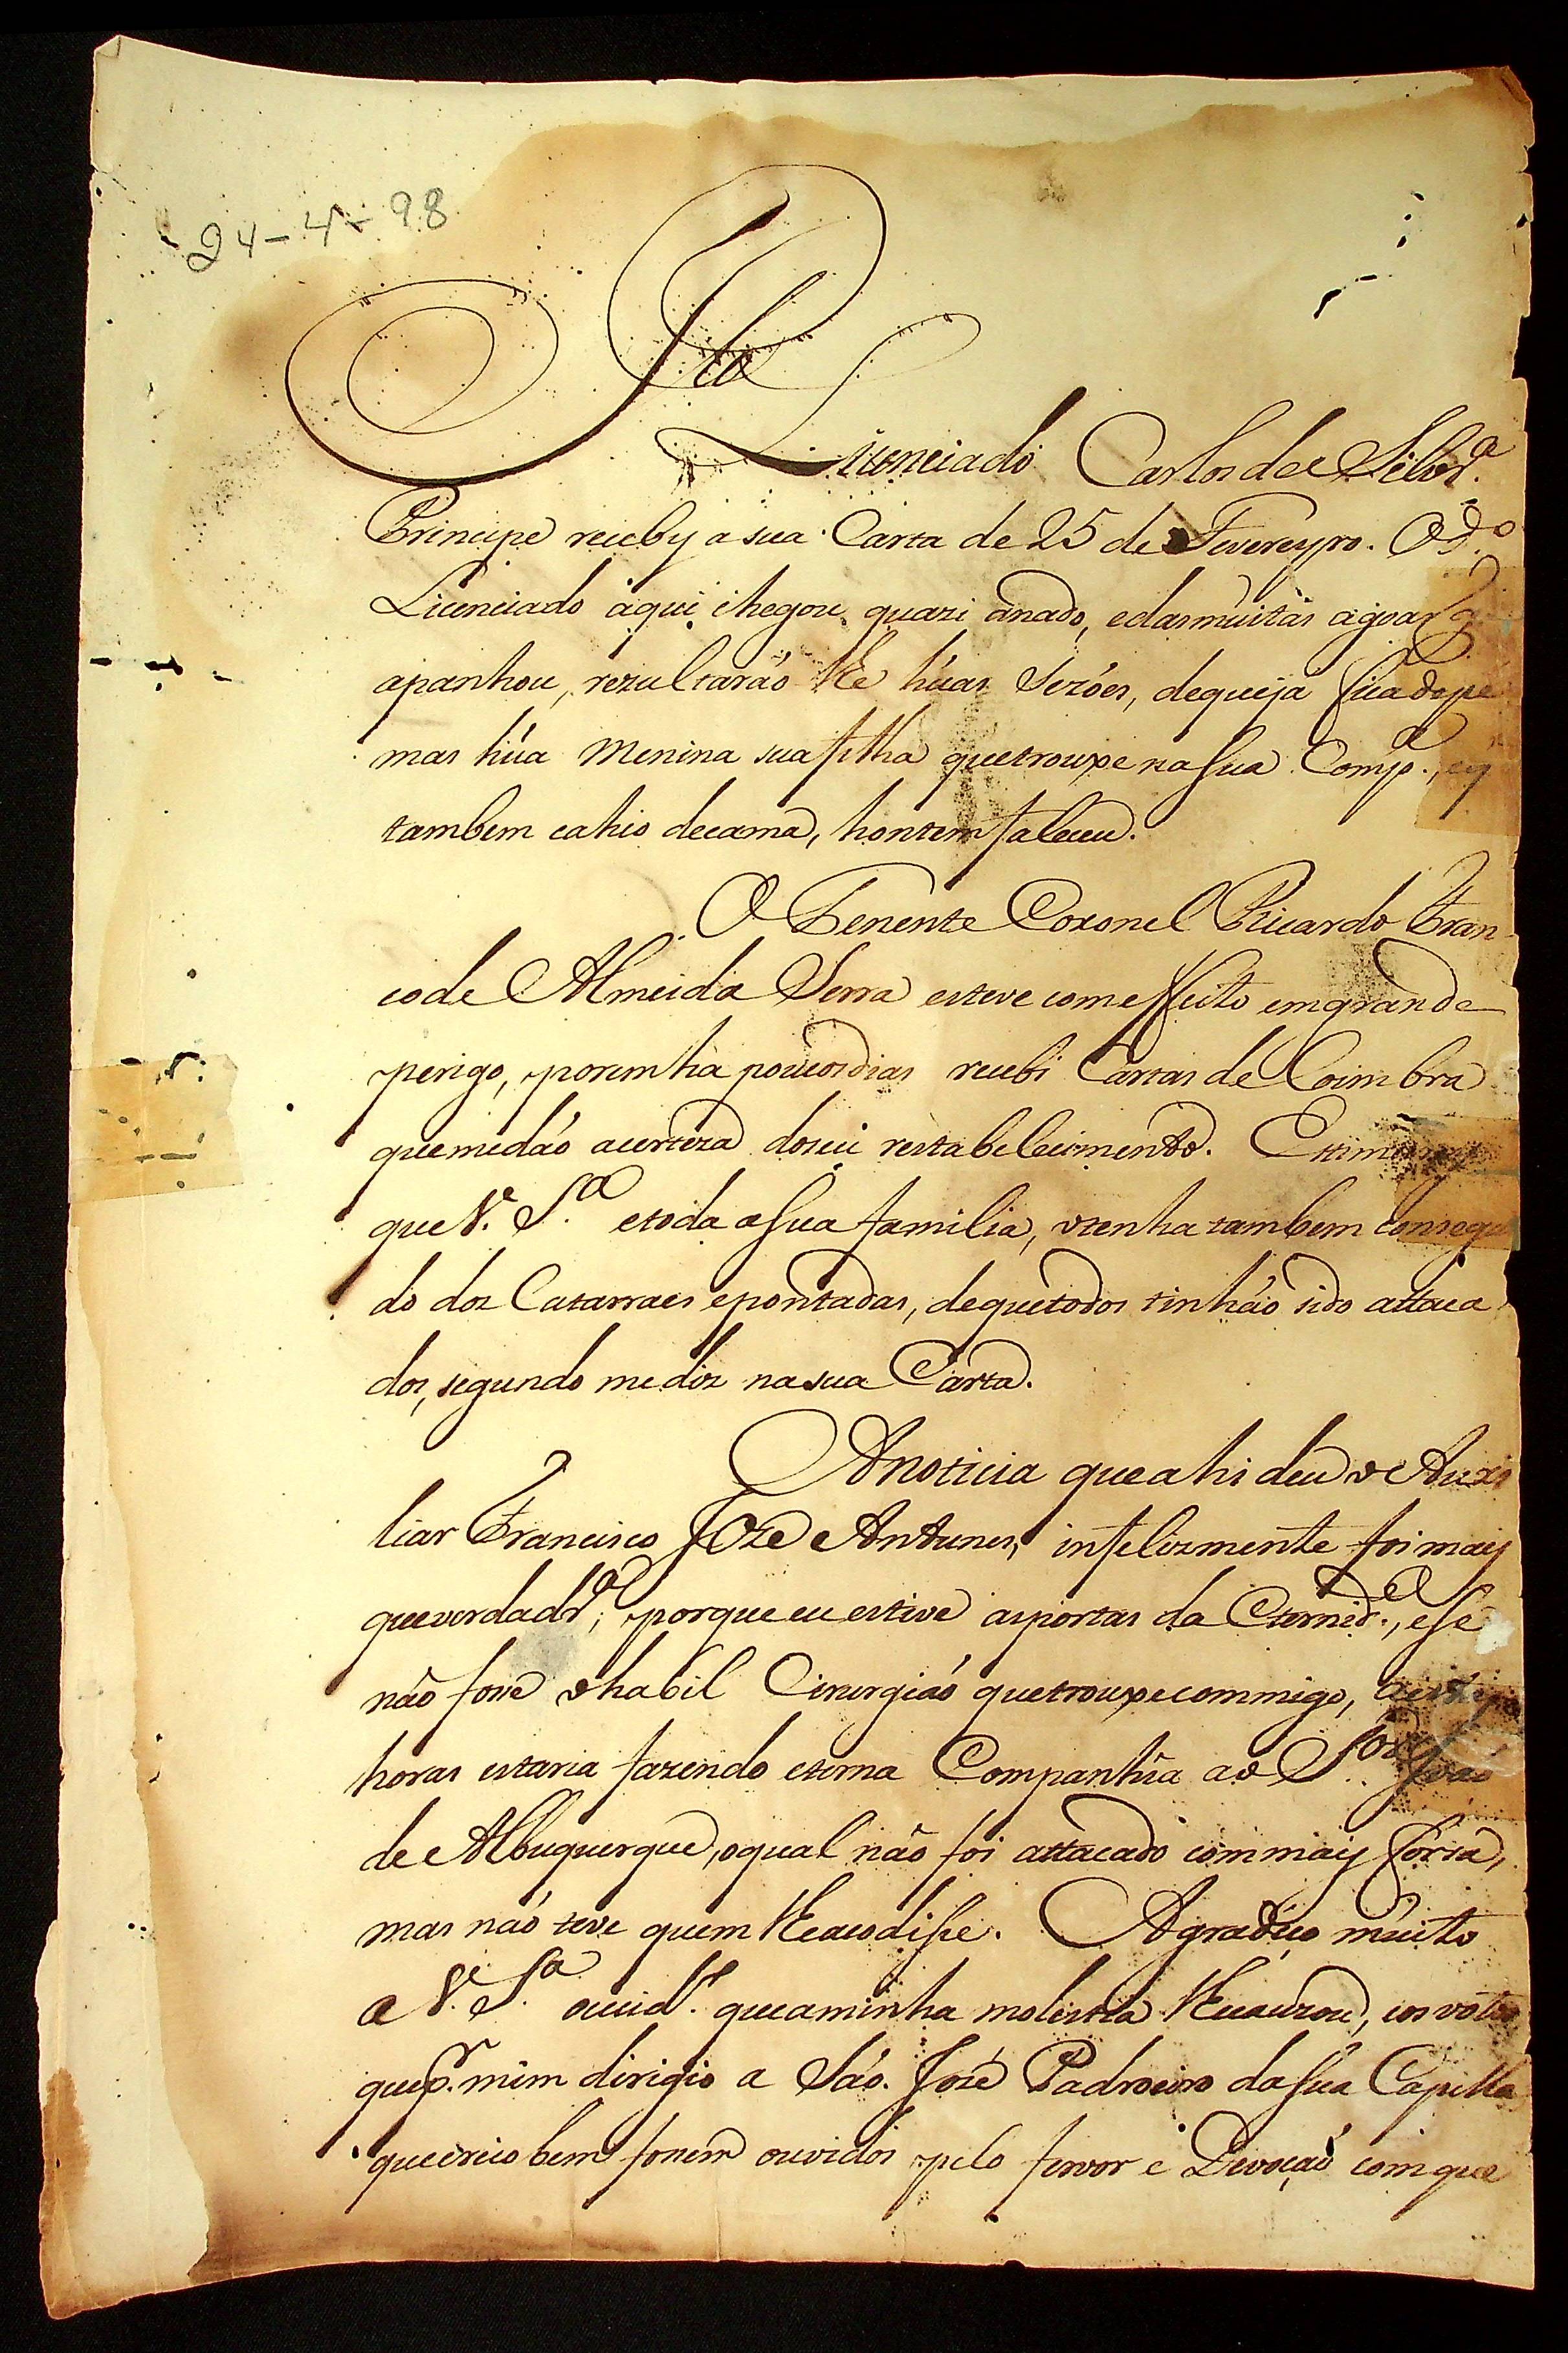 24-4-98
Pelo
Licenciado Carlos de
Principe receby a sua Carta de 25 de Fevereyro. O d.º
Licenciado aqui chegou quazi anado, e das muitas agoas q
apanhou, rezultaráó lhe húas Sezóes, de que já fica de pé
mas húa Menina sua filha que trouxe na sua Comp.ª, e q
tambem cahio de cama, hontem faleceu.
O Tenente Coronel Ricardo Fran
co de Almeida Serra esteve com effeito em grande
perigo, porem há poucos dias recebi Cartas de Coimbra
que me dáó a certeza do seu restabelecimento.
que V. S.ª e toda a sua familia, o tenha tambem consegui
do dos Catarraes e pontadas, de que todos tinháo sido attaca
dos, segundo me diz na sua Carta.
A noticia que ahi deu o Auxi
liar Francisco Joze Antunes, infelizmente foi mais
que verdadr.ª; porque eu estive as portas da Eternid.e, e se
não fosse o habil Cirurgiáó que trouxe commigo,
horas estaria fazendo eterna Companhia ao S.or João
de Albuquerque, o qual não foi attacado com mais forsa,
mas náó teve quem lhe acodisse. Agradeço muito
a V. S.ª o cuid.º que a minha molestia lhe cauzou, e os votos
que p.r mim dirigio a Sáo José Padroeiro da sua Capella
que creio bem fossem ouvidos pelo fervor e Devoçaó com que